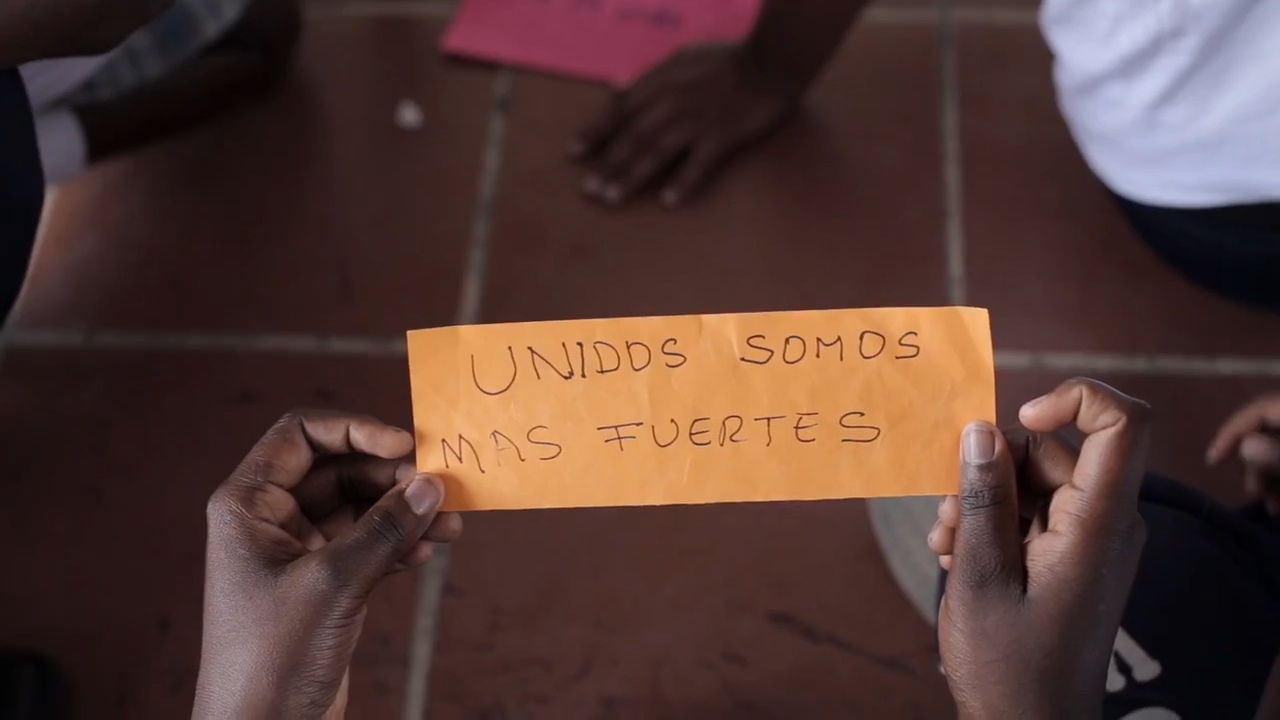 UNIDOS SOMOS
MAS FUERTES